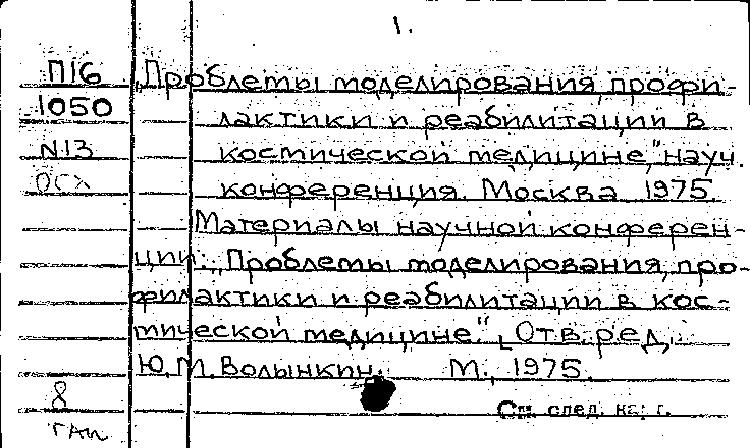 1.
П16 „Проблемы моделирования, профи-
1050 лактики и реабилитации в
N13 космической медицине", науч.
конференция. Москва 1975.
Материалы научной конферен-
ции: „Проблемы моделирования, про-
филактики и реабилитации в кос-
мической медицине." Отв. ред.
Ю.М. Волынкин. М., 1975.
8
См. след. кат.